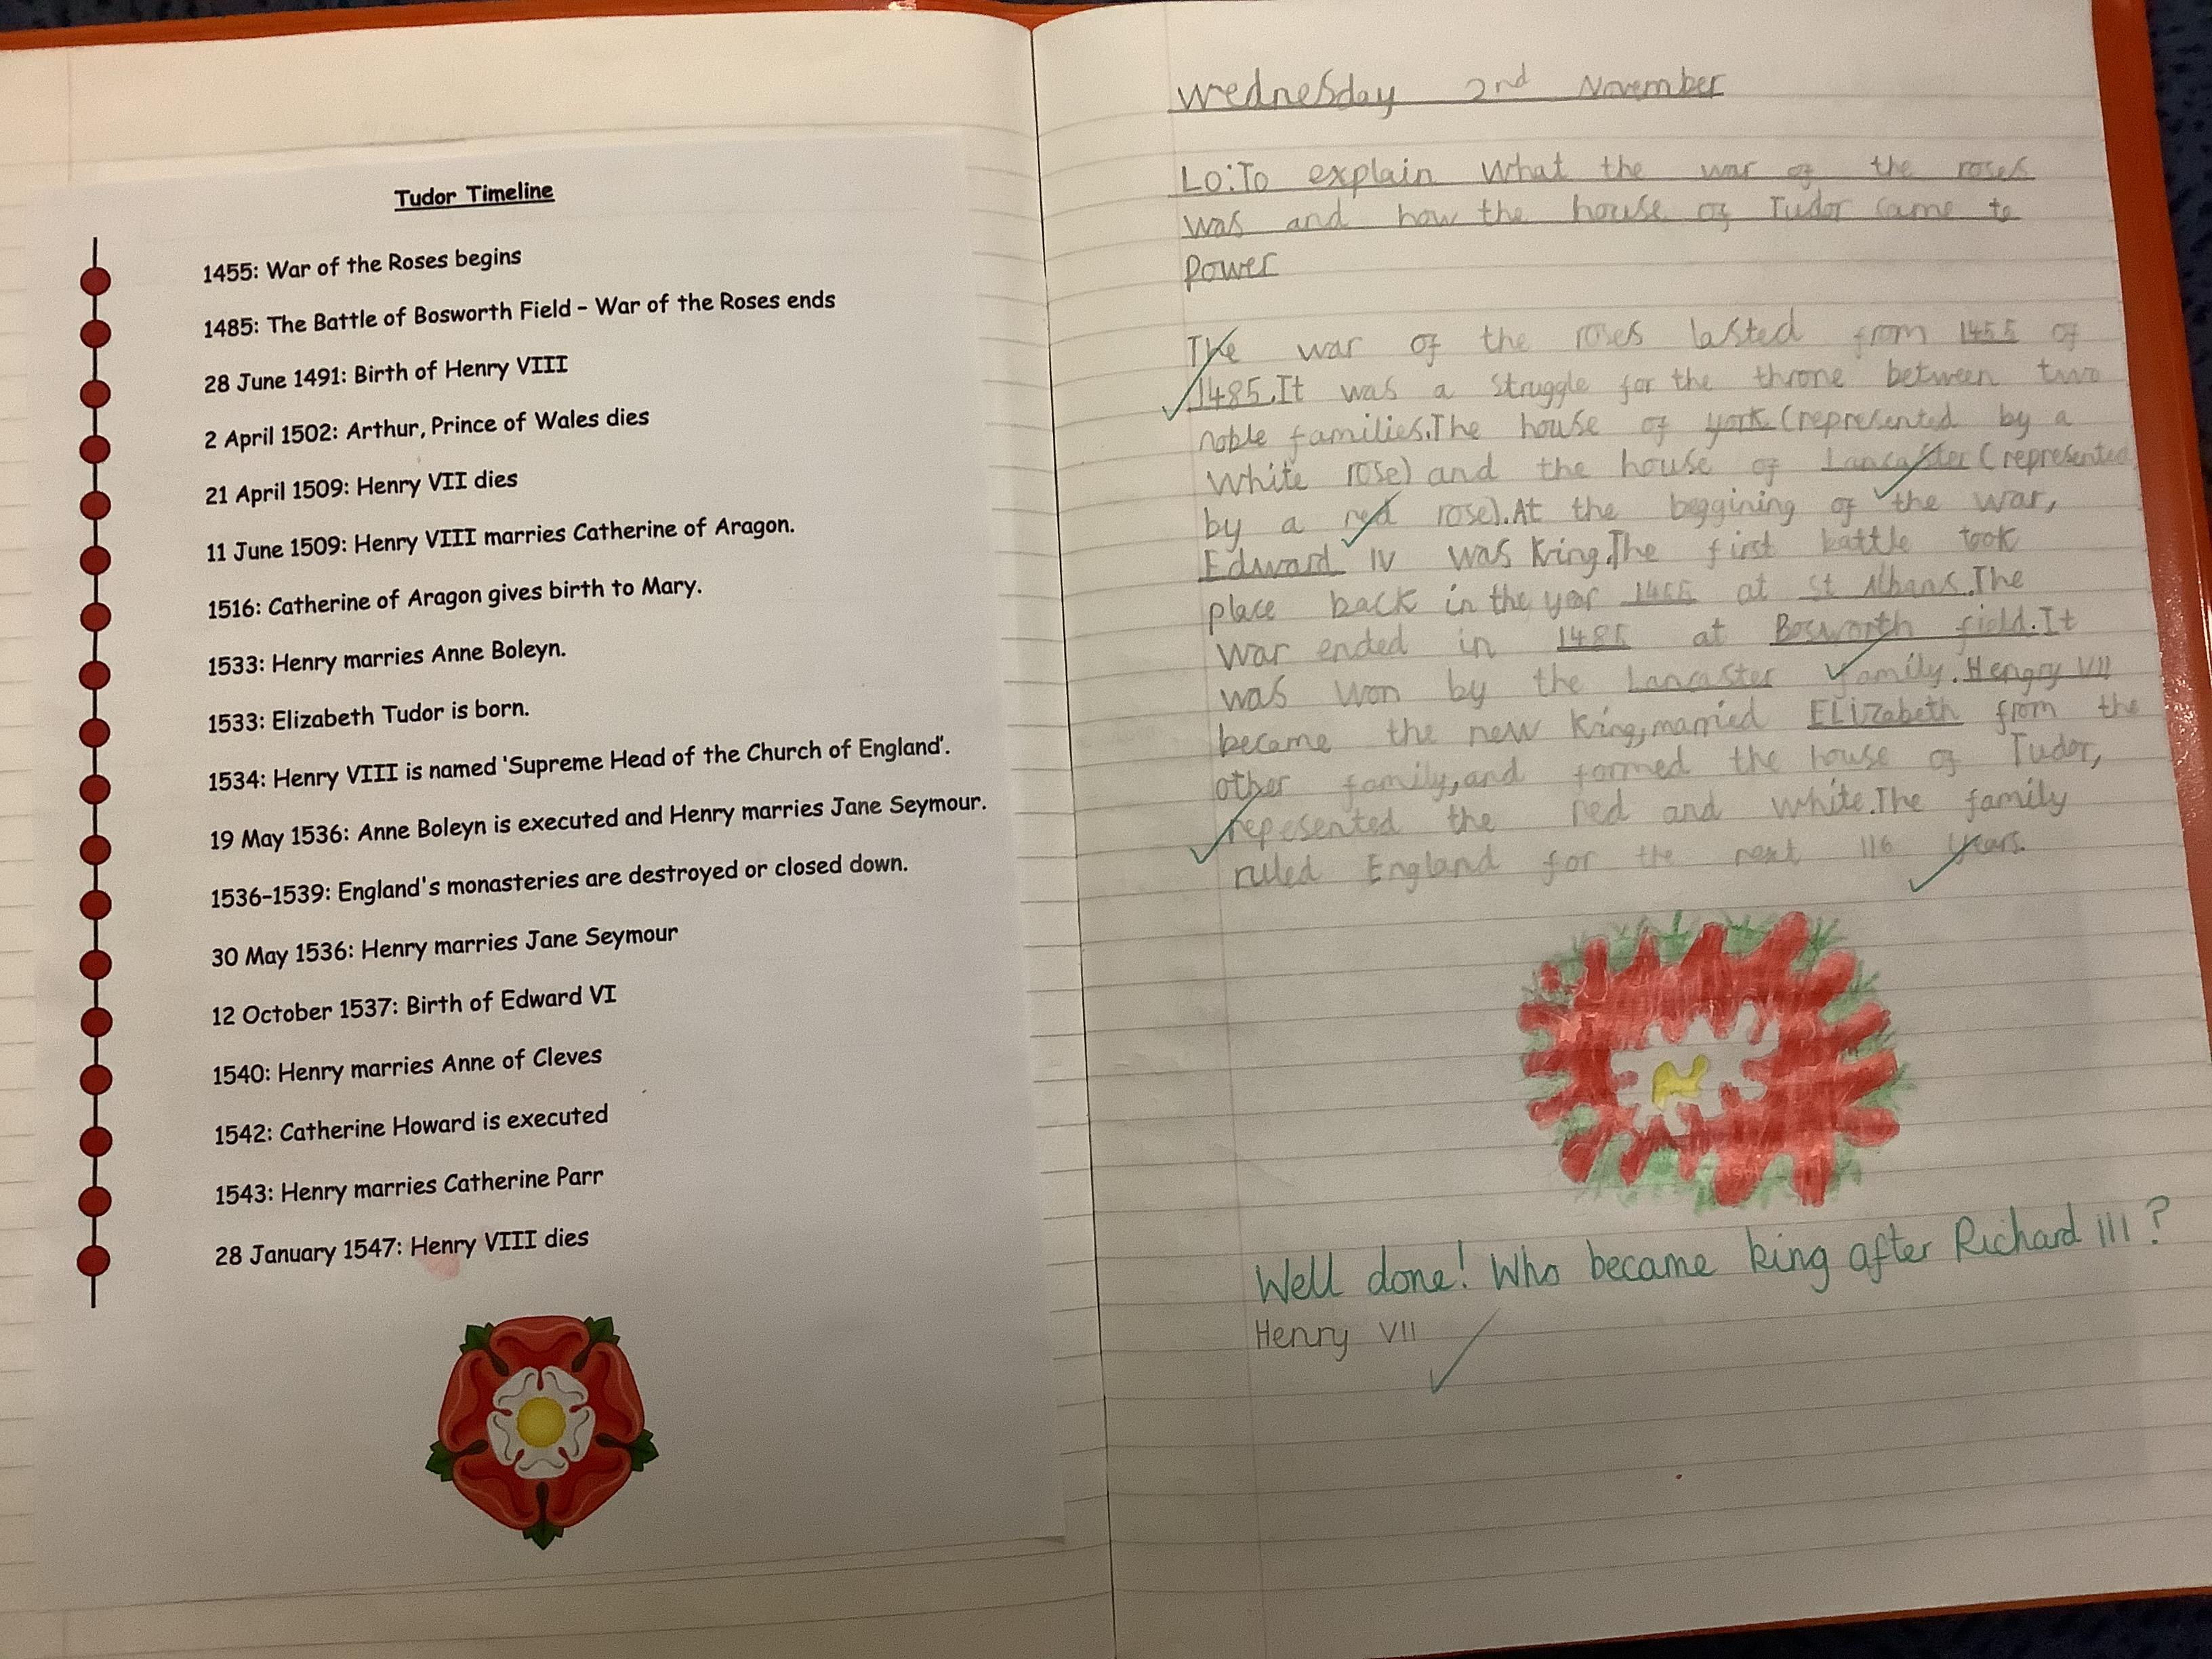 Tudor Timeline
1455: War of the Roses begins
1485: The Battle of Bosworth Field – War of the Roses ends
28 June 1491: Birth of Henry VIII
2 April 1502: Arthur, Prince of Wales dies
21 April 1509: Henry VII dies
11 June 1509: Henry VIII marries Catherine of Aragon.
1516: Catherine of Aragon gives birth to Mary.
1533: Henry marries Anne Boleyn.
1533: Elizabeth Tudor is born.
1534: Henry VIII is named 'Supreme Head of the Church of England'.
19 May 1536: Anne Boleyn is executed and Henry marries Jane Seymour.
1536–1539: England's monasteries are destroyed or closed down.
30 May 1536: Henry marries Jane Seymour
12 October 1537: Birth of Edward VI
1540: Henry marries Anne of Cleves
1542: Catherine Howard is executed
1543: Henry marries Catherine Parr
28 January 1547: Henry VIII dies
Wednesday 2nd November
Lo:To explain what the war of the roses
was and how the house of Tudor came to
Power
The war of the roses lasted from 1455 of
1485.It was a struggle for the throne between two
noble families.The house of york (represented by a
White rose) and the house of Lancaster (represented
by a red rose).At the beggining of the war,
Edward IV was King.The first battle took
place back in the year 1455 at St Albans.The
war ended in 1485 at Bosworth field.It
was won by the Lancaster family.Hengry VII
became the new King,married ELizabeth from the
other family,and formed the house of Tudor,
repesented the red and white.The family
ruled England for the next 116 years.
Well done! Who became king after Richard III?
Henry VII